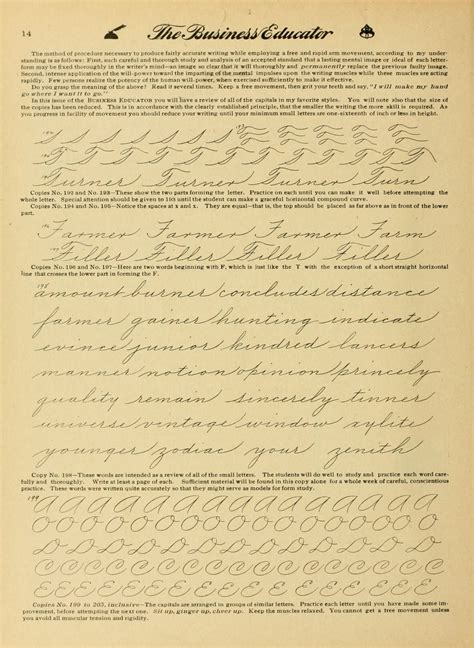 14 The Business Educator
The method of procedure necessary to produce fairly accurate writing while employing a free and rapid arm movement, according to my under-
standing is as follows: First, such careful and thorough study and analysis of an accepted standard that a lasting mental image or ideal of each letter-
form may be fixed thoroughly in the writer's mind—an image so clear that it will thoroughly and permanently replace the previous faulty image.
Second, intense application of the will-power toward the imparting of the mental impulses upon the writing muscles while these muscles are acting
rapidly. Few persons realize the potency of the human will-power, when exercised sufficiently to make it effective.
Do you grasp the meaning of the above? Read it several times. Keep a free movement, then grit your teeth and say, "I will make my hand
go where I want it to go."
In this issue of the BUSINESS EDUCATOR you will have a review of all of the capitals in my favorite styles. You will note also that the size of
the copies has been reduced. This is in accordance with the clearly established principle, that the smaller the writing the more skill is required. As
you progress in facility of movement you should reduce your writing until your minimum small letters are one-sixteenth of inch or less in height.
Turner Turner Turner Turn
Copies No. 192 and 193—These show the two parts forming the letter. Practice on each until you can make it well before attempting the
whole letter. Special attention should be given to 193 until the student can make a graceful horizontal compound curve.
Copies No. 194 and No. 195—Notice the spaces at x and x. They are equal—that is, the top should be placed as far above as in front of the lower
part.
Farmer Farmer Farmer Farm
Filler Filler Filler Filler
Copies No. 196 and No. 197—Here are two words beginning with F, which is just like the T with the exception of a short straight horizontal
line that crosses the lower part in forming the F.
198 amount burner concludes distance
farmer gainer hunting indicate
evince junior kindred lancers
manner notion opinion princely
quality remain sincerely tinner
universe vintage window xylite
younger zodiac your zenith
Copy No. 198—These words are intended as a review of all of the small letters. The students will do well to study and practice each word care-
fully and thoroughly. Write at least a page of each. Sufficient material will be found in this copy alone for a whole week of careful, conscientious
practice. These words were written quite accurately so that they might serve as models for form study.
199 a a a a a a a a a a
O O O O O O O O O O O
D D D D D D D D D
C C C C C C C C C C C
E E E E E E E E E E E
Copies No. 199 to 203, inclusive—The capitals are arranged in groups of similar letters. Practice each letter until you have made some im-
provement, before attempting the next one. Sit up, ginger up, cheer up. Keep the muscles relaxed. You cannot get a free movement unless
you avoid all muscular tension and rigidity.